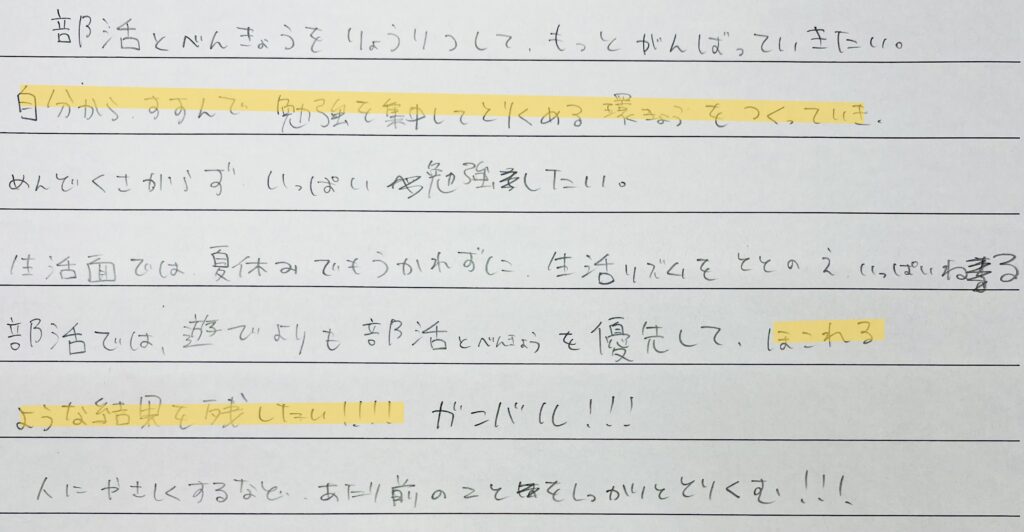 部活とべんきょうをりょうりつして、もっとがんばっていきたい。
自分から、すすんで 勉強を集中してとりくめる 環きょうをつくっていき、
めんどくさがらず いっぱい 勉強したい。
生活面では、夏休みでもうかれずに、生活リズムをととのえ、いっぱいねる
部活では、遊でよりも 部活とべんきょうを優先して、ほこれる
ような結果を残したい!!!! ガンバル!!!
人にやさしくするなど、あたり前のことをしっかりととりくむ!!!